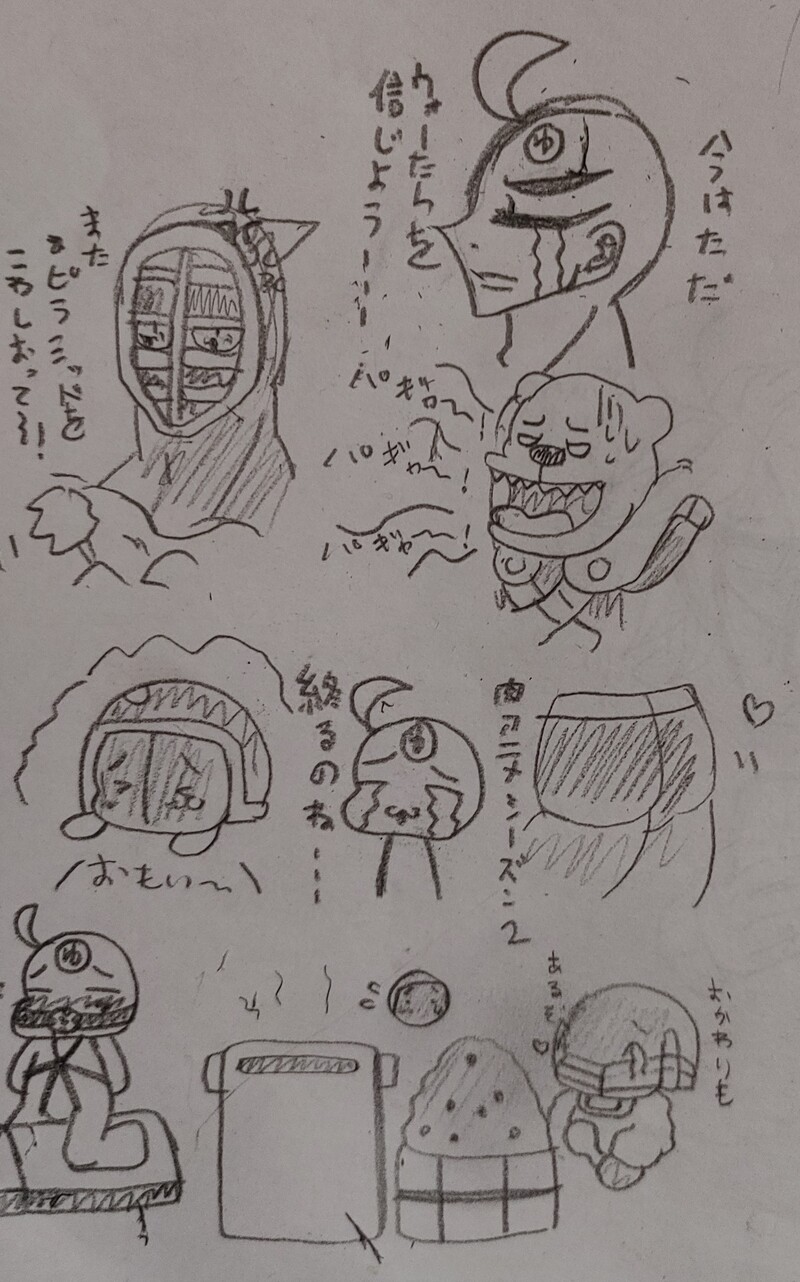 今はただ
ウォーたらを
信じよう……
ゆ
また
ピラミッドを
こわしおって〜!!
パギャ〜!
パギャ〜!
パギャ〜!
肉アニメシーズン2
終るのね……
ゆ
おもい〜
おかわりも
あるぞ♡
ゆ